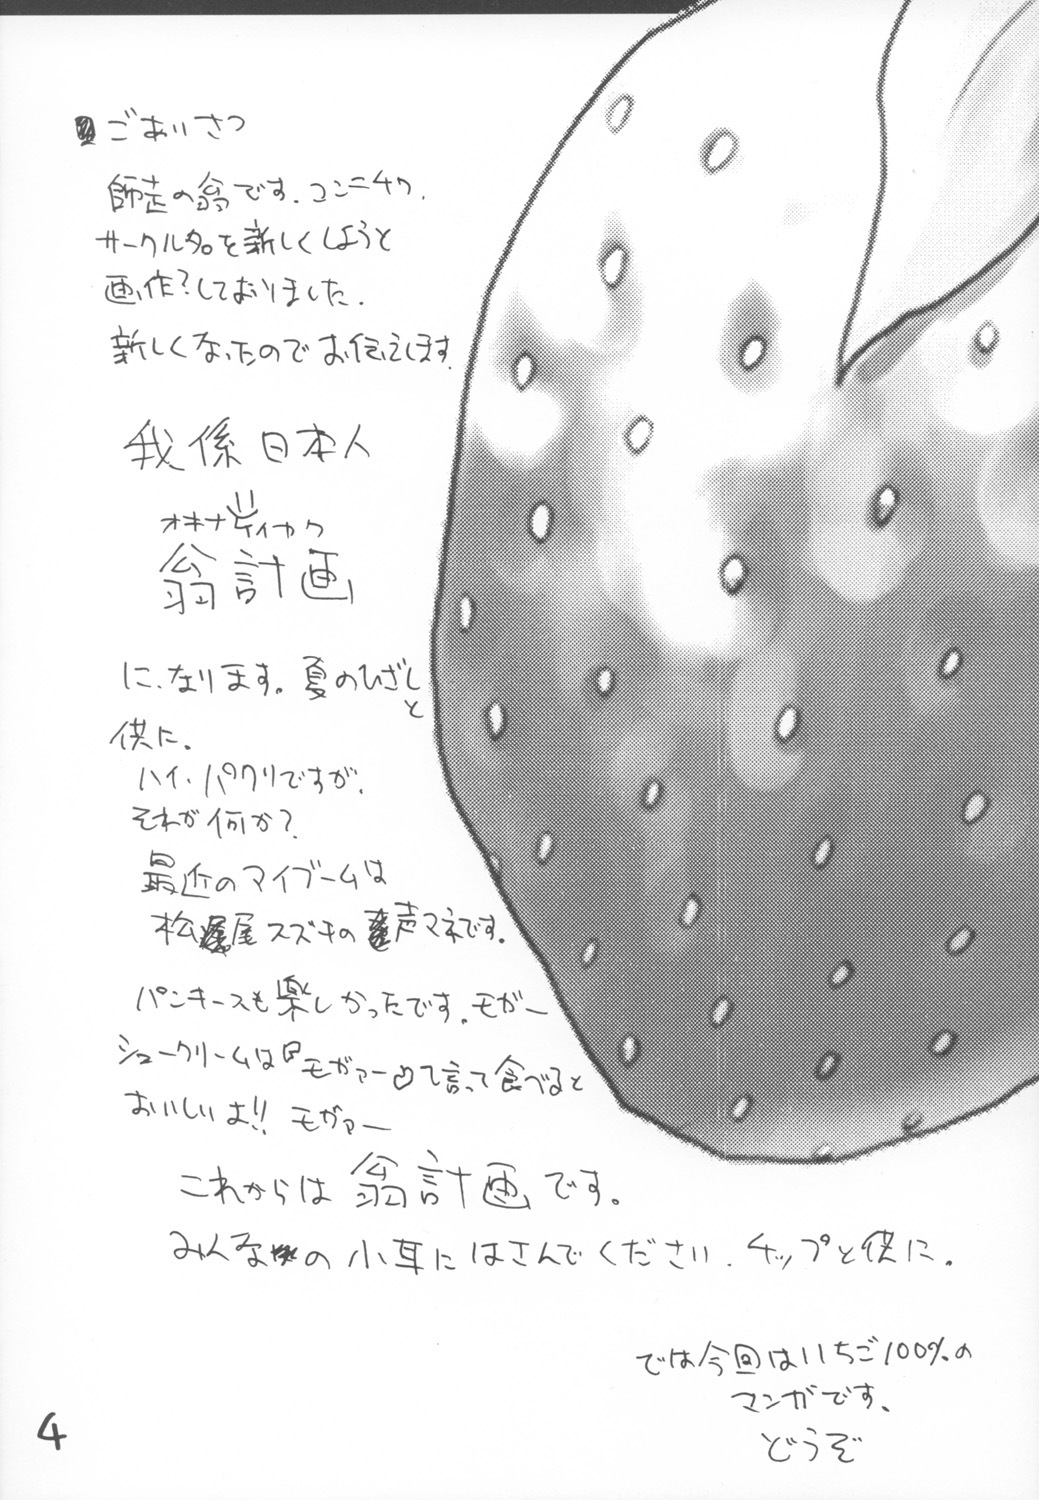 ごあいさつ
師走の翁です。コンニチワ。
サークル名を新しくしようと
画作?しておりました。
新しくなったのでお伝えします。
我係日本人
オキナケイカク
翁計画
に、なります。夏のひざしと
供に。
ハイ、パクリですが、
それが何か?
最近のマイブームは
松尾スズキの声マネです。
パンキースも楽しかったです。モガー
シュークリームは『モガァー』て言って食べると
おいしいよ!! モガァー
これからは翁計画です。
みんなの小耳にはさんでください。チップと供に。
では今回はいちご100%の
マンガです。
どうぞ
4